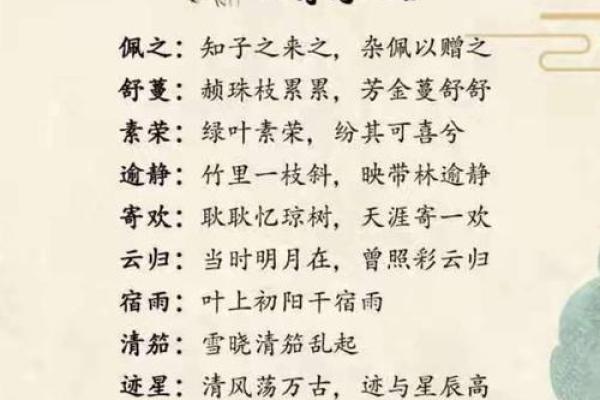 佩之：知子之来之，杂佩以赠之
舒蔓：赪珠枝累累，芳金蔓舒舒
素荣：绿叶素荣，纷其可喜兮
逾静：竹里一枝斜，映带林逾静
寄欢：耿耿忆琼树，天涯寄一欢
云归：当时明月在，曾照彩云归
宿雨：叶上初阳干宿雨
清笳：雪晓清笳乱起
迹星：清风荡万古，迹与星辰高